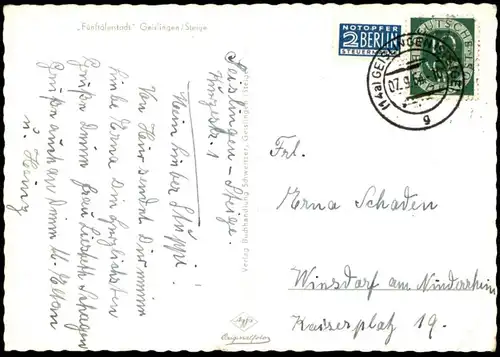 „Fünftälerstadt" Geislingen/Steige
NOTOPFER
2 BERLIN
STEUERMARKE
DEUTSCHE
(14a) GEISLINGEN (STEIGE)
07.9.
g
Geislingen-Steige.
1
Mein lieber Stuppi!
Von hier sendet Dir mein
liebe Erna die herzlichsten
Grüße Deine Frau
Grüße auch an Deine lb. Eltern
u. Heinz
Verlag: Buchhandlung Schwenzer, Geislingen - Steige
Agfa
Originalfoto
Frl.
Erna Schaden
Winsdorf am Niederrhein
Kaiserplatz 19.